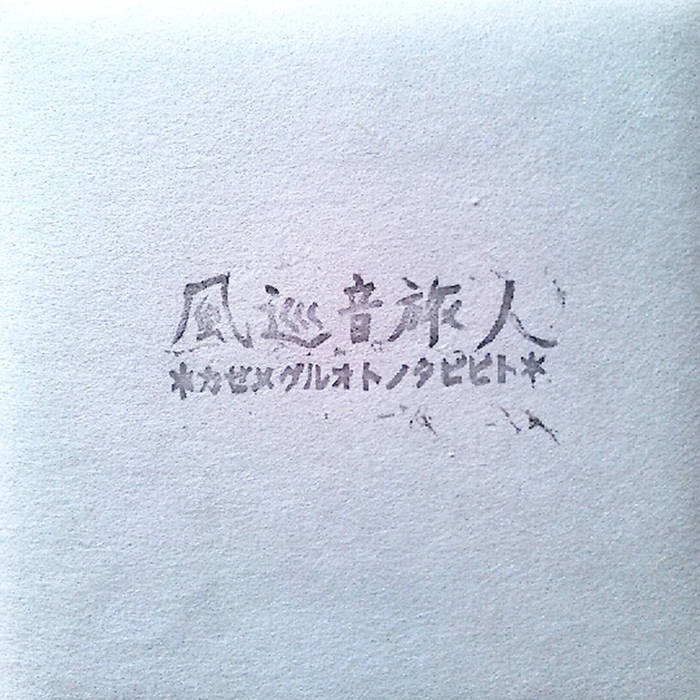 風巡音旅人
*カゼメグルオトノタビビト*